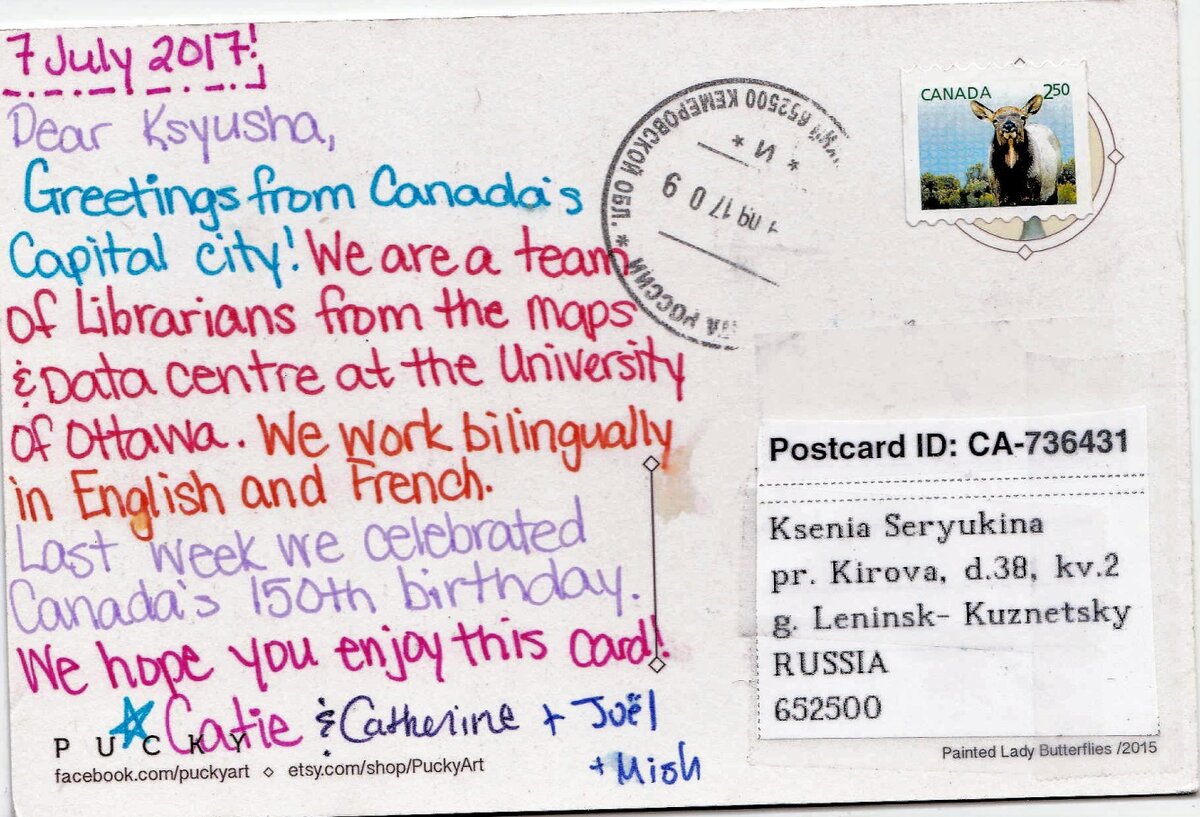 7 July 2017!
Dear Ksyusha,
Greetings from Canada's
Capital city! We are a team
of Librarians from the maps
& Data centre at the University
of Ottawa. We work bilingually
in English and French.
Last week we celebrated
Canada's 150th birthday.
We hope you enjoy this card!
Catie & Catherine + Joël
+ Mish
PUCKY
facebook.com/puckyart ◇ etsy.com/shop/PuckyArt
CANADA 250
652500 КЕМЕРОВСКОЙ ОБЛ. *
* И *
17 0 9
РОССИИ
Postcard ID: CA-736431
Ksenia Seryukina
pr. Kirova, d.38, kv.2
g. Leninsk- Kuznetsky
RUSSIA
652500
Painted Lady Butterflies /2015